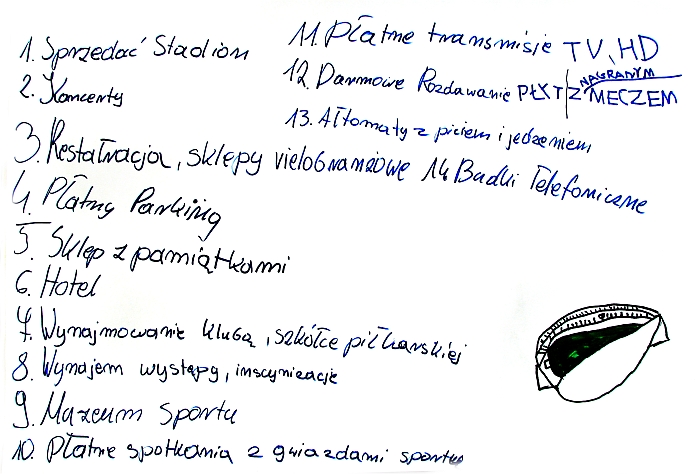 1. Sprzedać Stadion
2. Koncerty
3. Restałracja, sklepy vielobranżowe
4. Płatny Parking
5. Sklep z pamiątkami
6. Hotel
7. Wynajmowanie klubą, szkółce piłkarskiej
8. Wynajem występy, inscynizacje
9. Muzeum Sportu
10. Płatne spotkania z gwiazdami sportu
11. Płatne transmisje TV, HD
12. Darmowe Rozdawanie PŁYT Z NAGRANYM MECZEM
13. Ałtomaty z piciem i jedzeniem
14. Budki Telefoniczne